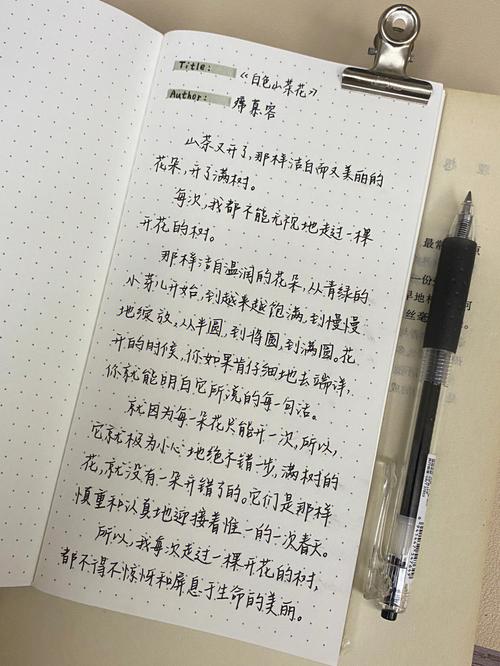 Title: 《白色山茶花》
Author: 席慕容
山茶又开了,那样洁白而又美丽的
花朵,开了满树。
每次,我都不能无视地走过一棵
开花的树。
那样洁白温润的花朵,从青绿的
小芽儿开始,到越来越饱满,到慢慢
地绽放,从半圆,到将圆,到满圆。花
开的时候,你如果肯仔细地去端详,
你就能明白它所说的每一句话。
就因为每一朵花只能开一次,所以,
它就极为小心地绝不错步,满树的
花,就没有一朵开错了的。它们是那样
慎重和认真地迎接着惟一的一次春天。
所以,我每次走过一棵开花的树,
都不得不惊讶和屏息于生命的美丽。